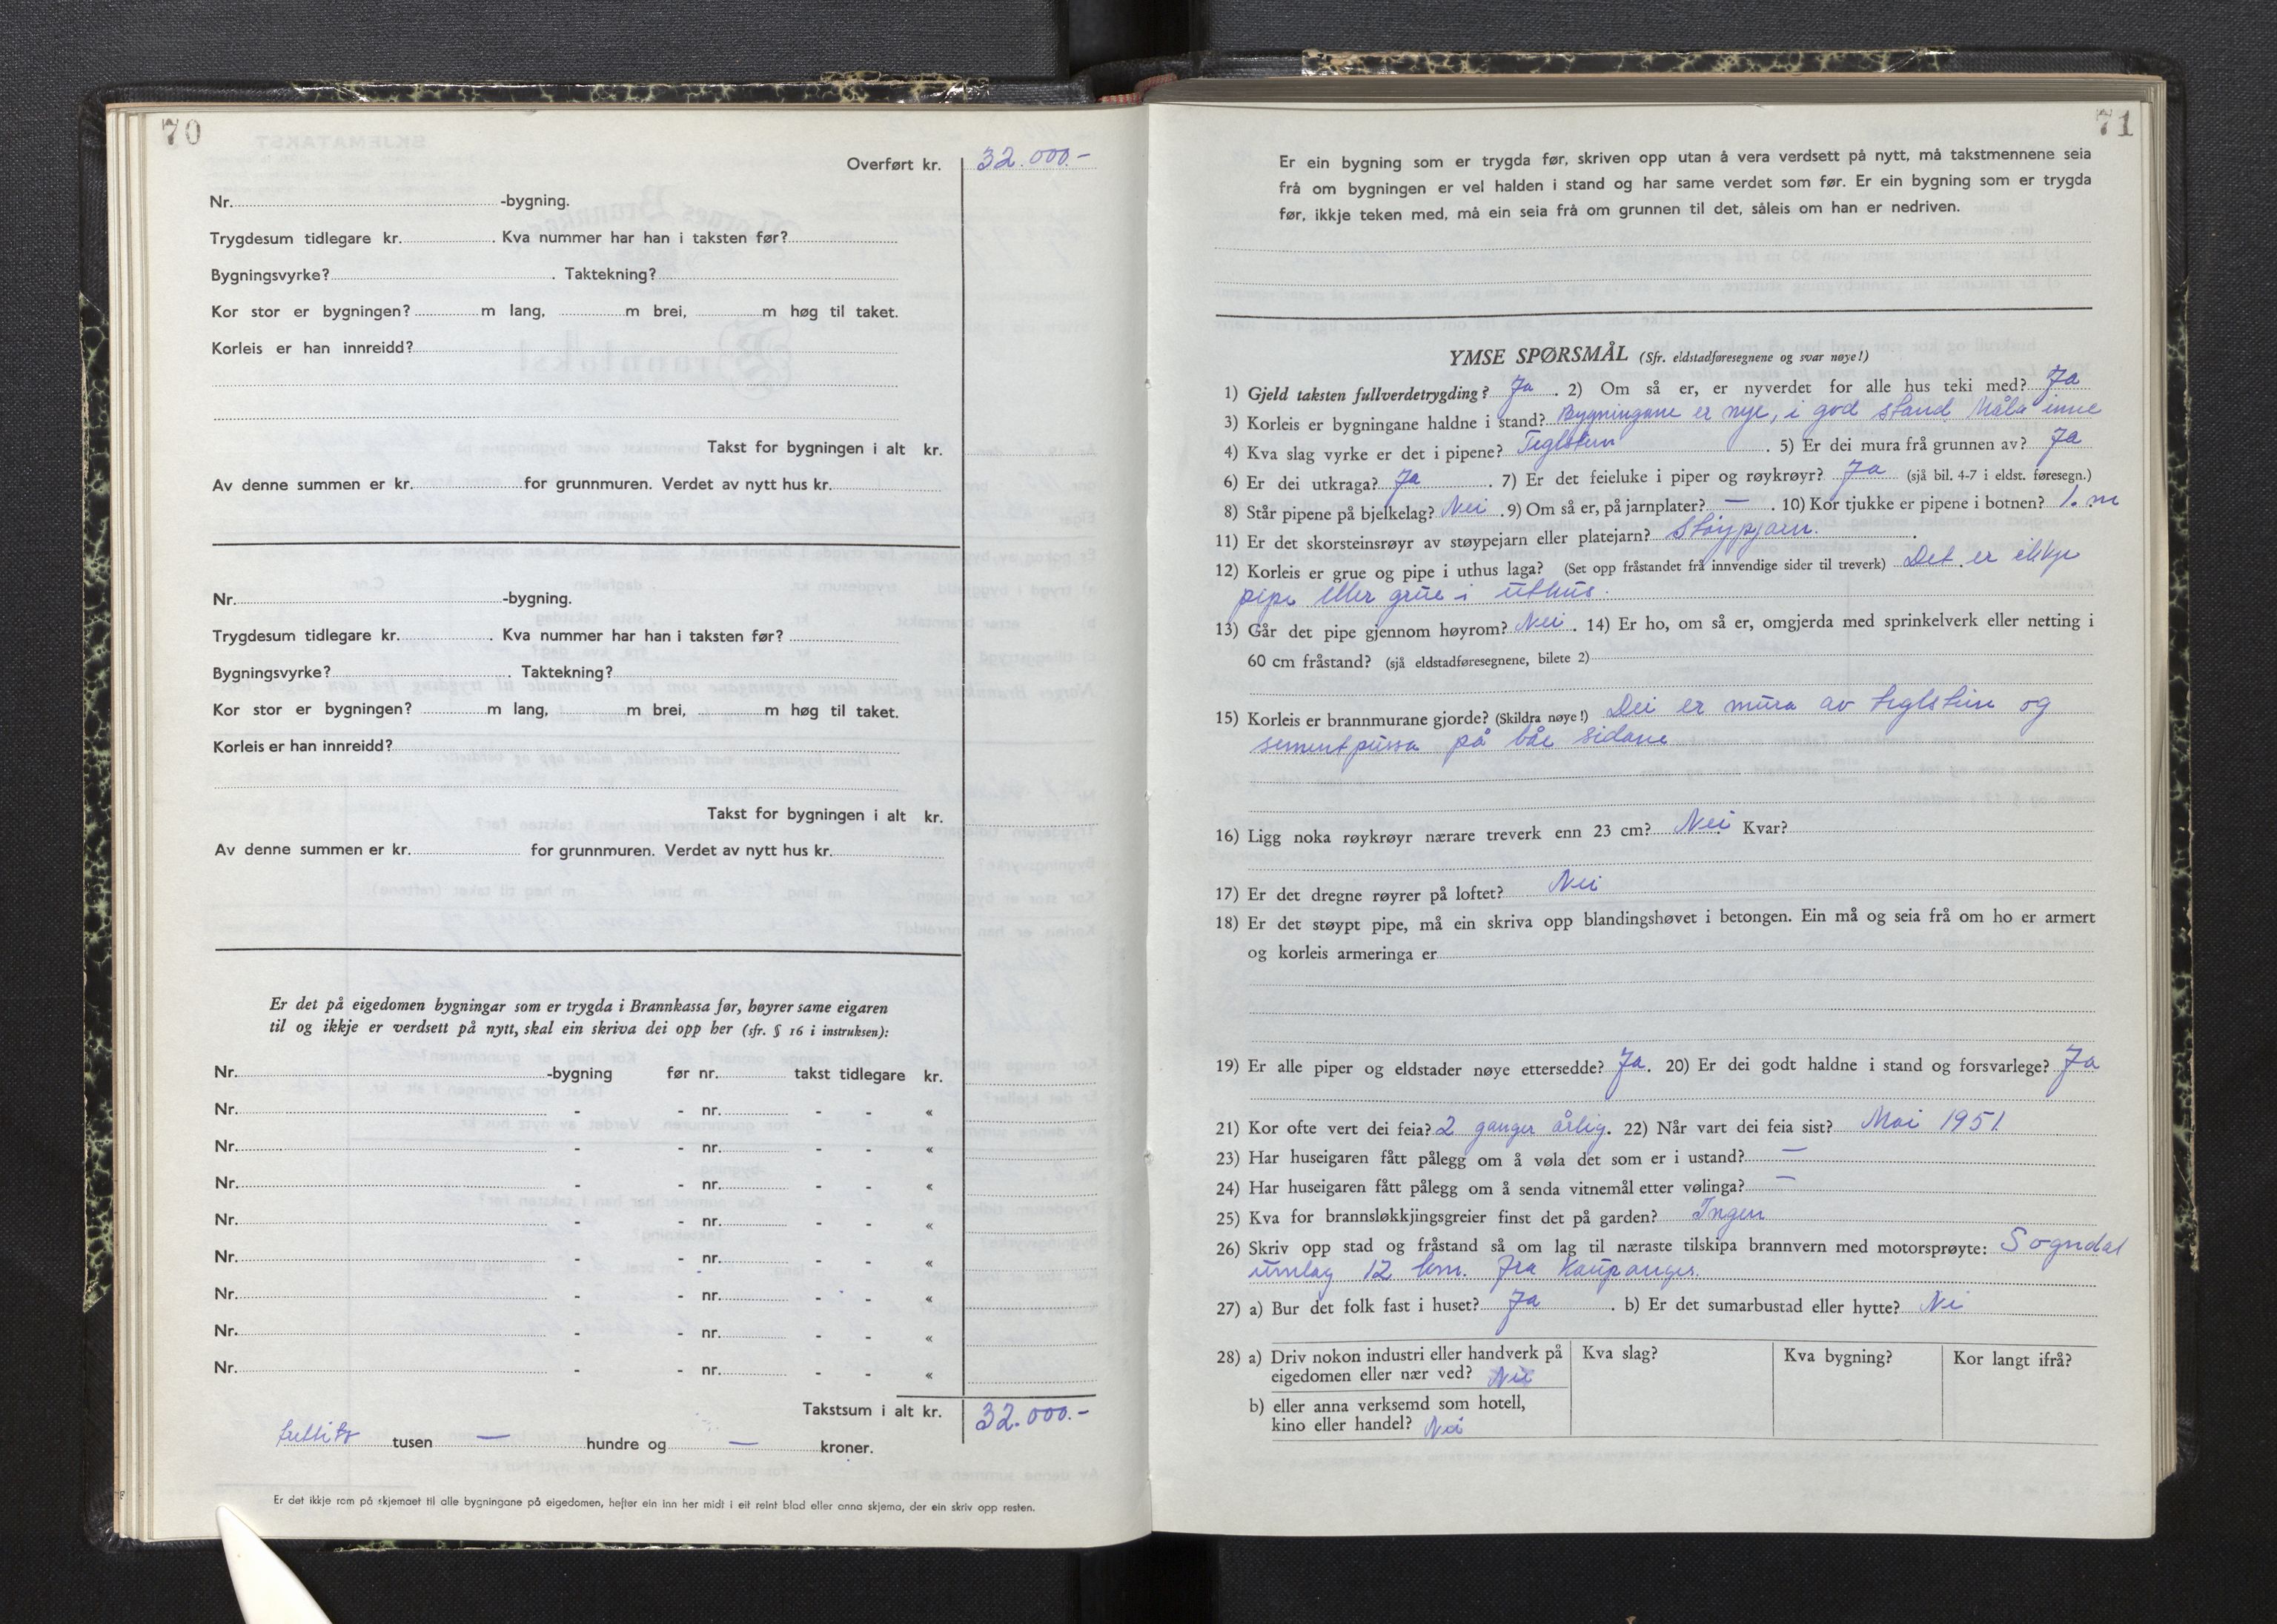 70
Overført kr. 32.000.-
Nr. -bygning.
Trygdesum tidlegare kr. . Kva nummer har han i taksten før?
Bygningsvyrke? . Taktekning?
Kor stor er bygningen? m lang, m brei, m høg til taket.
Korleis er han innreidd?
Takst for bygningen i alt kr.
Av denne summen er kr. for grunnmuren. Verdet av nytt hus kr.
Nr. -bygning.
Trygdesum tidlegare kr. . Kva nummer har han i taksten før?
Bygningsvyrke? . Taktekning?
Kor stor er bygningen? m lang, m brei, m høg til taket.
Korleis er han innreidd?
Takst for bygningen i alt kr.
Av denne summen er kr. for grunnmuren. Verdet av nytt hus kr.
Er det på eigedomen bygningar som er trygda i Brannkassa før, høyrer same eigaren
til og ikkje er verdsett på nytt, skal ein skriva dei opp her (sfr. § 16 i instruksen):
Nr. -bygning før nr. takst tidlegare kr.
Nr. - - nr. - - «
Nr. - - nr. - - «
Nr. - - nr. - - «
Nr. - - nr. - - «
Nr. - - nr. - - «
Nr. - - nr. - - «
Nr. - - nr. - - «
Nr. - - nr. - - «
Takstsum i alt kr. 32.000.-
tusen — hundre og — kroner.
Er det ikkje rom på skjemaet til alle bygningane på eigedomen, hefter ein inn her midt i eit reint blad eller anna skjema, der ein skriv opp resten.
71
Er ein bygning som er trygda før, skriven opp utan å vera verdsett på nytt, må takstmennene seia
frå om bygningen er vel halden i stand og har same verdet som før. Er ein bygning som er trygda
før, ikkje teken med, må ein seia frå om grunnen til det, såleis om han er nedriven.
YMSE SPØRSMÅL (Sfr. eldstadføresegnene og svar nøye!)
1) Gjeld taksten fullverdetrygding? Ja . 2) Om så er, er nyverdet for alle hus teki med? Ja
3) Korleis er bygningane haldne i stand? Bygningane er nye, i god stand Måla inne
4) Kva slag vyrke er det i pipene? Teglstein . 5) Er dei mura frå grunnen av? Ja
6) Er dei utkraga? Ja . 7) Er det feieluke i piper og røykrøyr? Ja (sjå bil. 4-7 i eldst. føresegn.)
8) Står pipene på bjelkelag? Nei . 9) Om så er, på jarnplater? — . 10) Kor tjukke er pipene i botnen? 1. m
11) Er det skorsteinsrøyr av støypejarn eller platejarn? Støypjarn.
12) Korleis er grue og pipe i uthus laga? (Set opp fråstandet frå innvendige sider til treverk) Det er ikkje
pipe eller grue i uthus.
13) Går det pipe gjennom høyrom? Nei . 14) Er ho, om så er, omgjerda med sprinkelverk eller netting i
60 cm fråstand? (sjå eldstadføresegnene, bilete 2)
15) Korleis er brannmurane gjorde? (Skildra nøye!) Dei er mura av teglstein og
sementpussa på båe sidane
16) Ligg noka røykrøyr nærare treverk enn 23 cm? Nei Kvar?
17) Er det dregne røyrer på loftet? Nei
18) Er det støypt pipe, må ein skriva opp blandingshøvet i betongen. Ein må og seia frå om ho er armert
og korleis armeringa er
19) Er alle piper og eldstader nøye ettersedde? Ja. 20) Er dei godt haldne i stand og forsvarlege? Ja
21) Kor ofte vert dei feia? 2 ganger årlig. 22) Når vart dei feia sist? Mai 1951
23) Har huseigaren fått pålegg om å vøla det som er i ustand? —
24) Har huseigaren fått pålegg om å senda vitnemål etter vølinga? —
25) Kva for brannsløkkjingsgreier finst det på garden? Ingen
26) Skriv opp stad og fråstand så om lag til næraste tilskipa brannvern med motorsprøyte: Sogndal
umlag 12 km. fra Kaupanger.
27) a) Bur det folk fast i huset? Ja . b) Er det sumarbustad eller hytte? Nei
28) a) Driv nokon industri eller handverk på Kva slag? Kva bygning? Kor langt ifrå?
eigedomen eller nær ved? Nei
b) eller anna verksemd som hotell,
kino eller handel? Nei